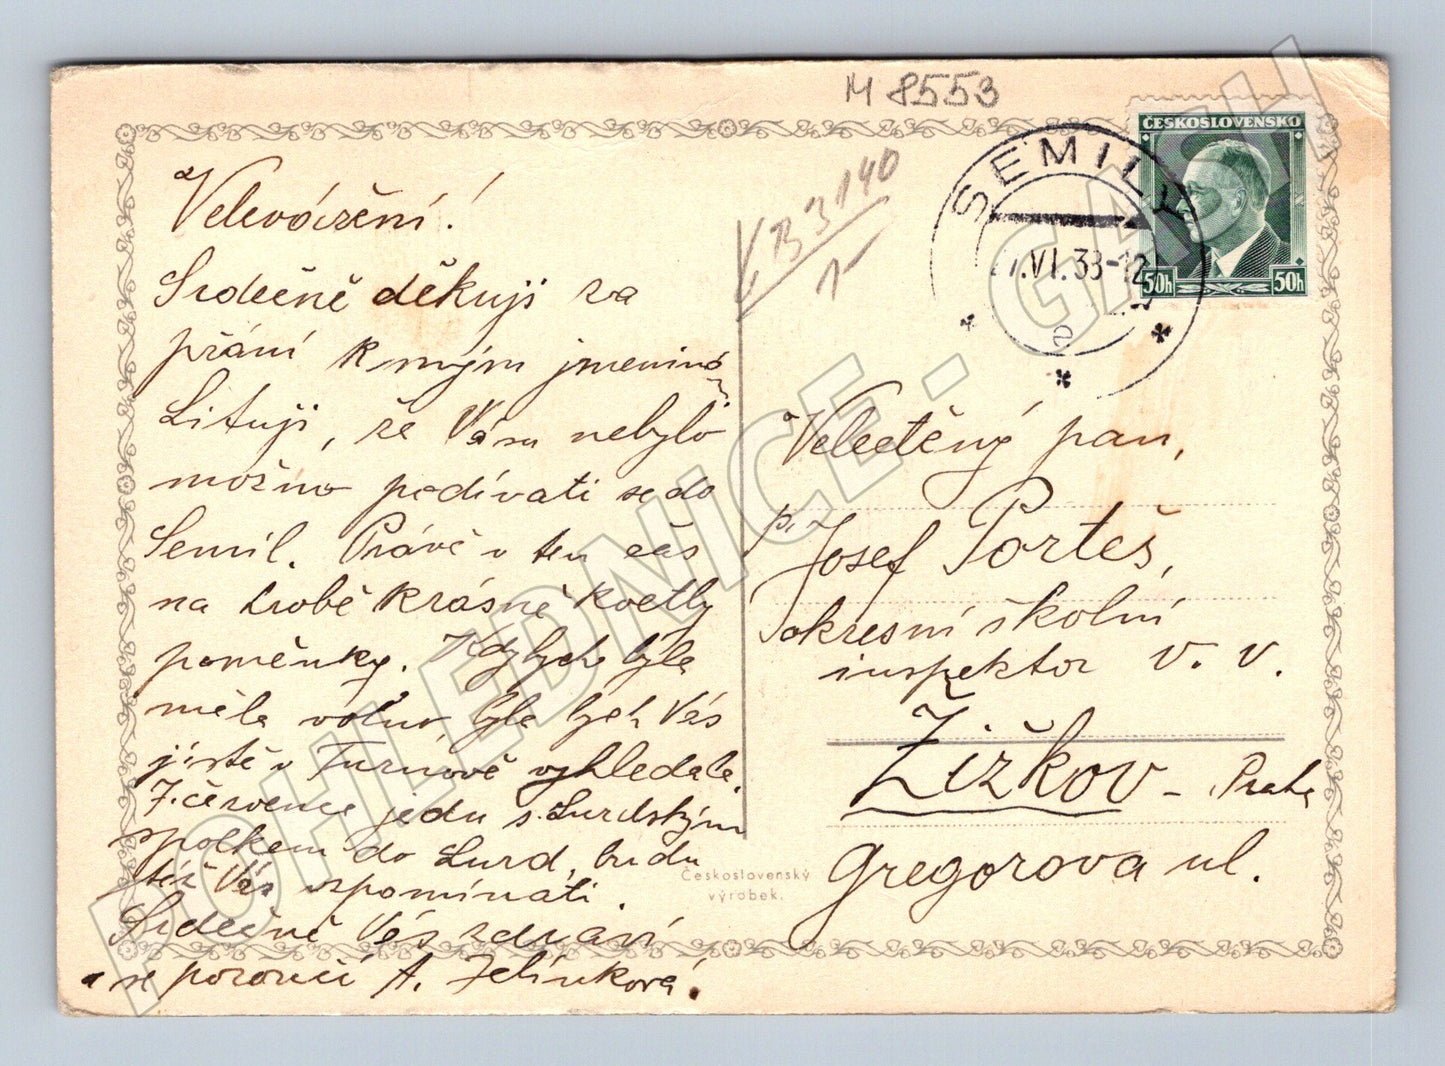 M 8553
ČESKOSLOVENSKO
SEMILY
.VI.38-12
50h 50h
Velevážení!
Srdečně děkuji za
přání k mým jmeninám.
Lituji, že Vám nebylo
možno podívati se do
Semil. Právě v ten čas
na hrobě krásně kvetly
pomněnky. Kdybych byla
měla volno, byla bych Vás
jistě v Turnově vyhledala.
7. července jedu s Lurdským
spolkem do Lurd, budu
též Vás vzpomínati.
Srdečně Vás zdraví
a se poroučí A. Jelínková.
Československý
výrobek.
Velectěný pan,
p. Josef Porteš,
okresní školní
inspektor v. v.
Žižkov - Praha
Gregorova ul.
POHLEDNICE - GASH